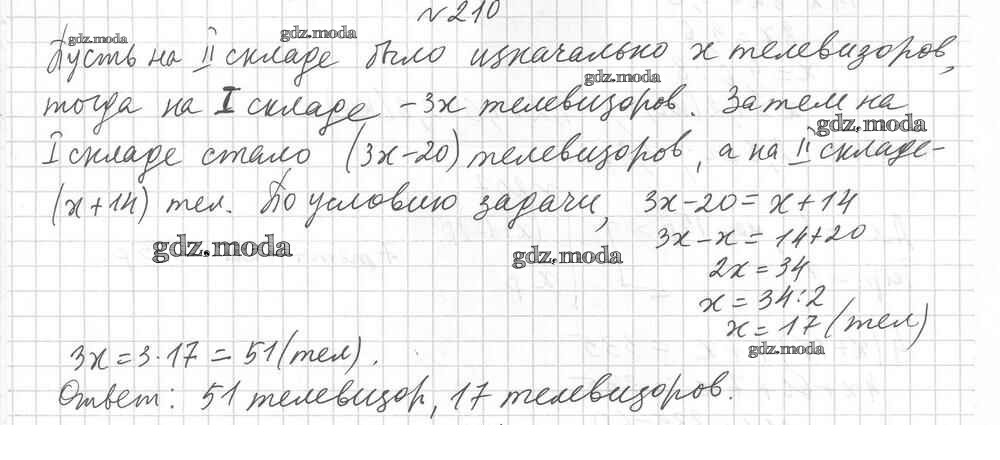 №210
gdz.moda gdz.moda
Пусть на II складе было изначально x телевизоров,
gdz.moda
тогда на I складе - 3x телевизоров. Затем на
gdz.moda
I складе стало (3x-20) телевизоров, а на II складе-
(x+14) тел. По условию задачи, 3x-20=x+14
3x-x=14+20
gdz.moda gdz.moda
2x=34
x=34:2
x=17(тел)
gdz.moda
3x=3·17=51(тел).
Ответ: 51 телевизор, 17 телевизоров.